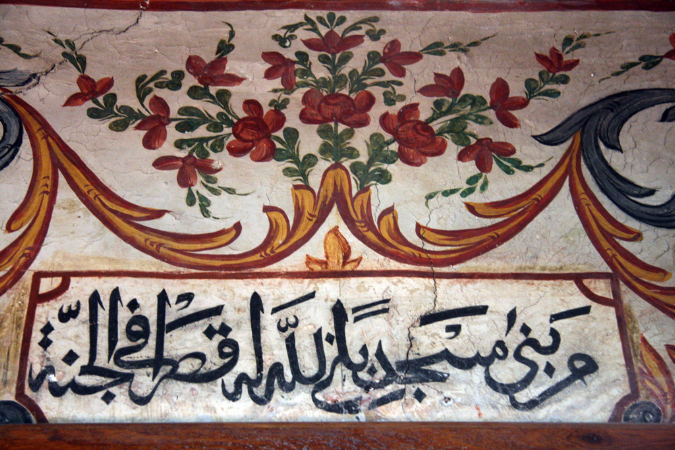 من بنى مسجداً بنى الله له قصرا في الجنّة